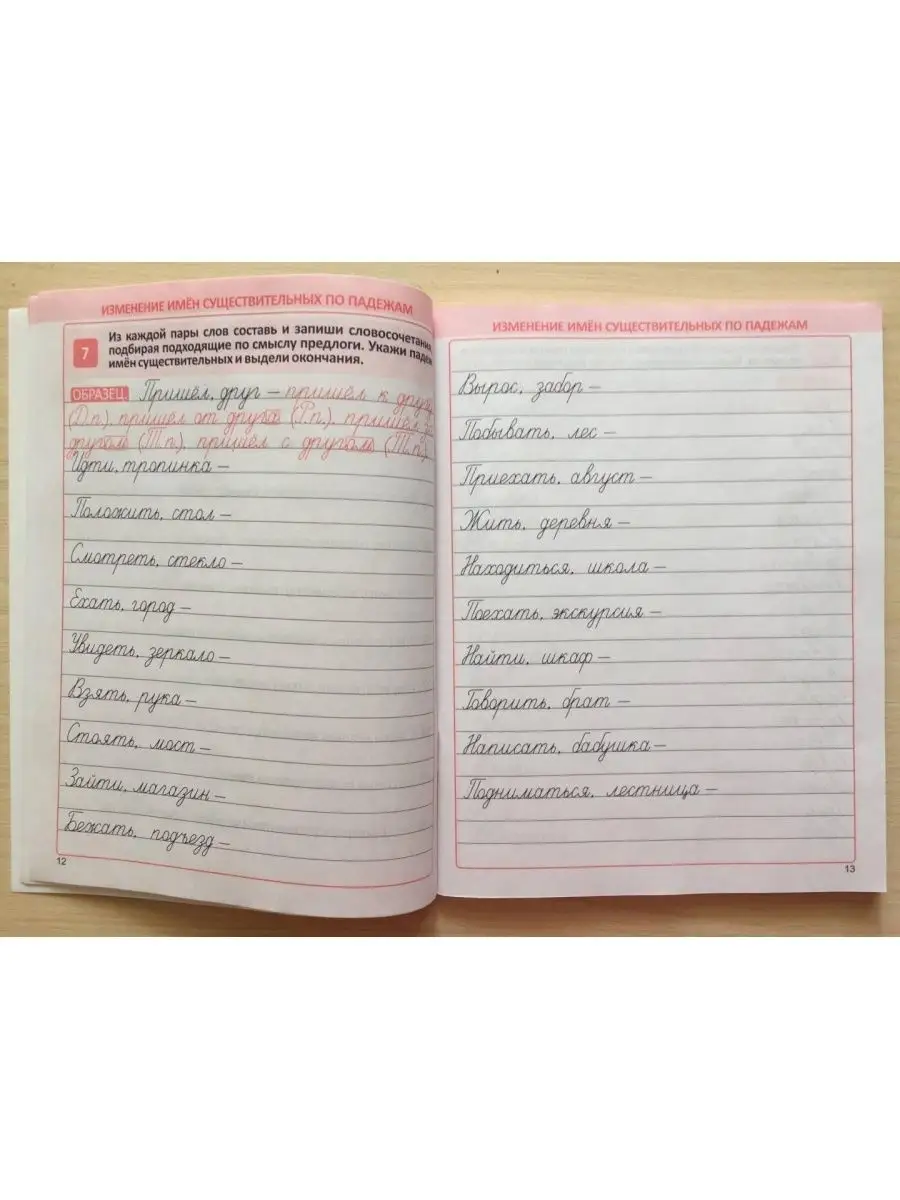 ИЗМЕНЕНИЕ ИМЁН СУЩЕСТВИТЕЛЬНЫХ ПО ПАДЕЖАМ
7
Из каждой пары слов составь и запиши словосочетания
подбирая подходящие по смыслу предлоги. Укажи падеж
имён существительных и выдели окончания.
ОБРАЗЕЦ. Пришёл, друг – пришёл к другу
(Д.п.), пришёл от друга (Р.п.), пришёл за
другом (Т.п.), пришёл с другом (Т.п.).
Идти, тропинка –
Положить, стол –
Смотреть, стекло –
Ехать, город –
Увидеть, зеркало –
Взять, рука –
Стоять, мост –
Зайти, магазин –
Бежать, подъезд –
12
ИЗМЕНЕНИЕ ИМЁН СУЩЕСТВИТЕЛЬНЫХ ПО ПАДЕЖАМ
Вырос, забор –
Побывать, лес –
Приехать, август –
Жить, деревня –
Находиться, школа –
Поехать, экскурсия –
Найти, шкаф –
Говорить, брат –
Написать, бабушка –
Подниматься, лестница –
13